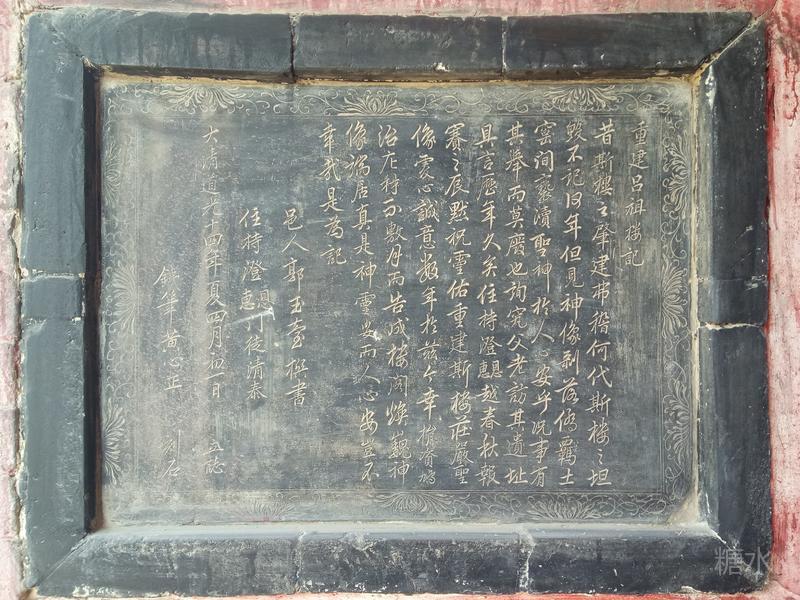 重建吕祖楼記
昔斯楼之肇建弗稽何代斯楼之坦
毁不記何年但見神像剥落傷羈土
窑洞褻瀆聖神於人心安乎况事有
其舉而莫廢也詢究父老訪其遺址
具言歷年久矣住持澄惠越春秋報
賽之辰默祝靈佑重建斯楼莊嚴聖
像虔心誠意数年於兹今幸捐資鳩
治庀材不数月而告成楼阁焕巍神
像端居真是神靈妥而人心安豈不
幸哉是為記
邑人郭玉臺撰書
住持澄惠門徒清泰
大清道光十四年夏四月初一日 立誌
鉄筆黄心正 刻石
糖水